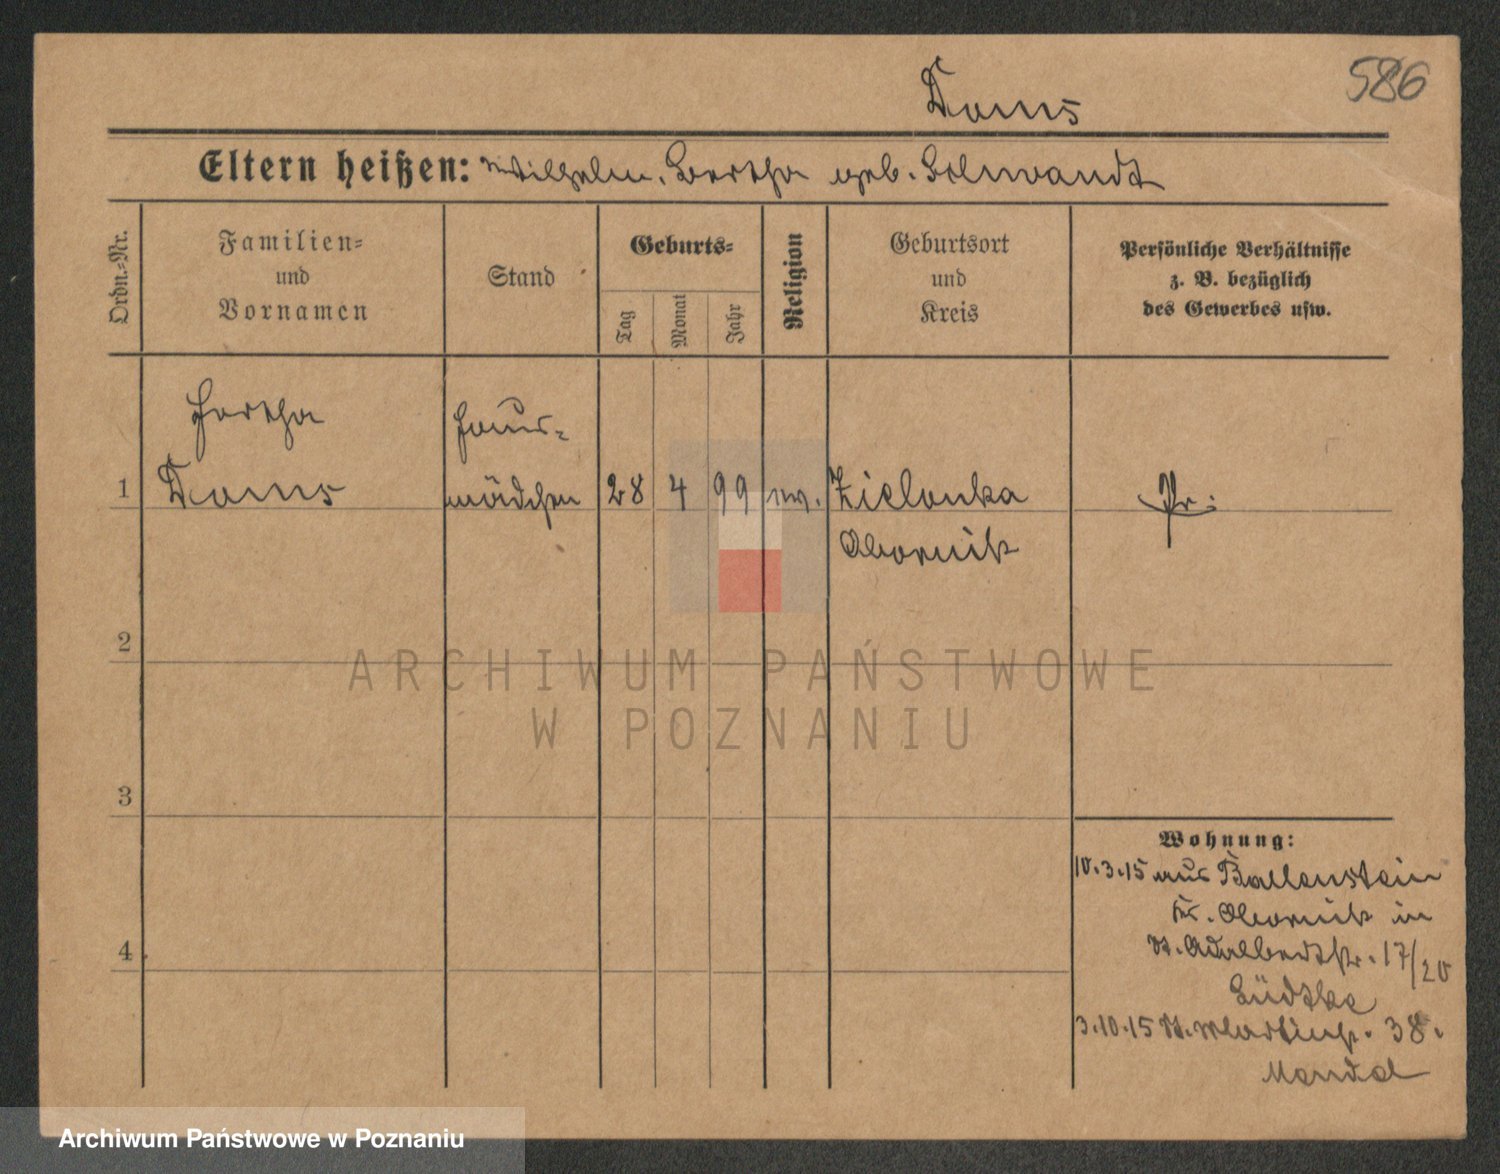 586
Doms
Eltern heißen: Wilhelm, Bertha geb. Hellwandt
Ordn.-Nr.
Familien-
und
Vornamen
Stand
Geburts-
Tag
Monat
Jahr
Religion
Geburtsort
und
Kreis
Persönliche Verhältnisse
z. B. bezüglich
des Gewerbes usw.
Hertha
Haus-
1 Doms mädchen 28 4 99 ev. Zielonka Pr.
Obornik
2
3
4
Wohnung:
10.3.15 aus Ballenstein
Kr. Obornik in
St. Adalbertstr. 17/20
Lüdtke
3.10.15 St. Martinstr. 38.
Mandel
ARCHIWUM PAŃSTWOWE
W POZNANIU
Archiwum Państwowe w Poznaniu